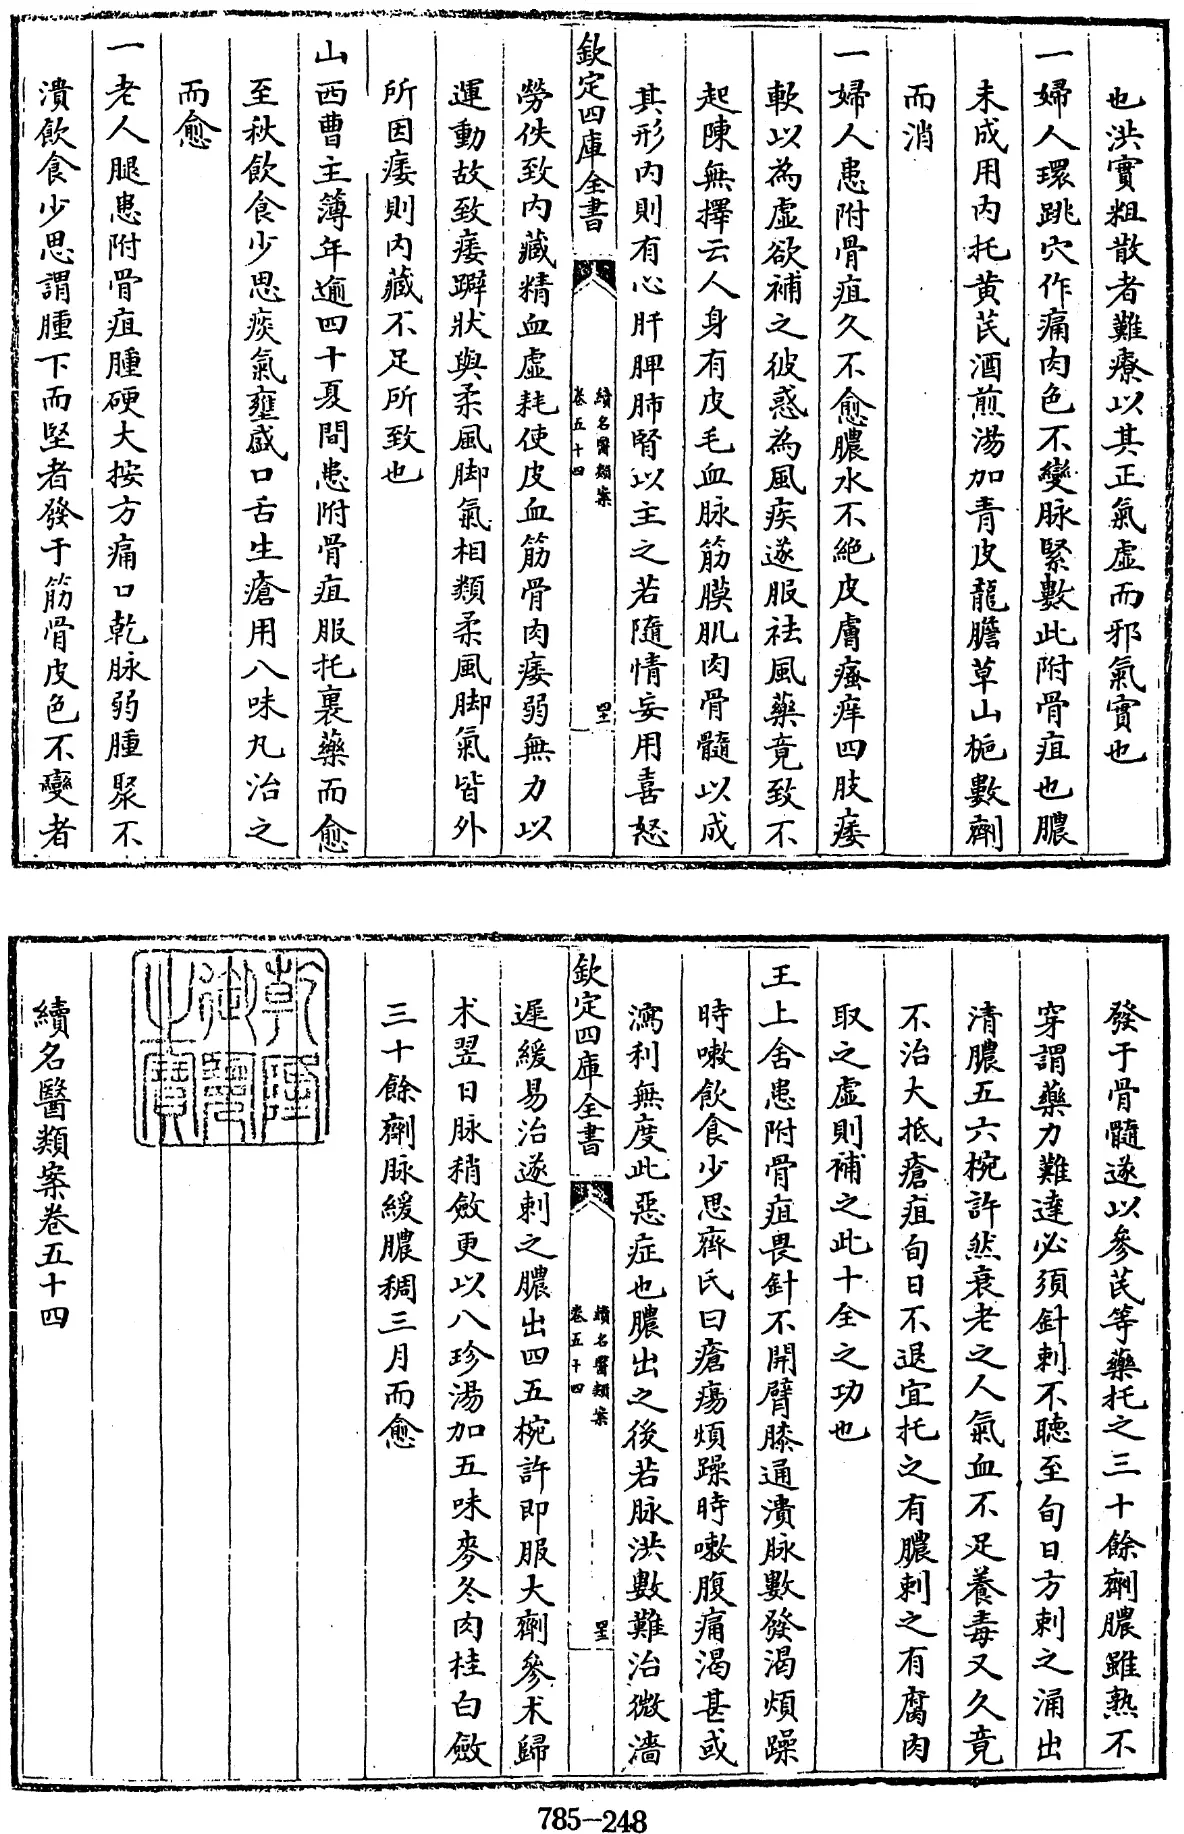 也洪實粗散者難療以其正氣虛而邪氣實也
一婦人環跳穴作痛肉色不變脉緊數此附骨疽也膿
未成用内托黄芪酒煎湯加青皮龍膽草山梔數劑
而消
一婦人患附骨疽久不愈膿水不絶皮膚瘙痒四肢痿
軟以為虛欲補之彼惑為風疾遂服祛風藥竟致不
起陳無擇云人身有皮毛血脉筋膜肌肉骨髓以成
其形内則有心肝脾肺腎以主之若隨情妄用喜怒
欽定四庫全書
續名醫類案
卷五十四
勞佚致内藏精血虛耗使皮血筋骨肉痿弱無力以
運動故致痿躃狀與柔風脚氣相類柔風脚氣皆外
所因痿則内藏不足所致也
山西曹主簿年逾四十夏間患附骨疽服托裏藥而愈
至秋飲食少思痰氣壅盛口舌生瘡用八味丸治之
而愈
一老人腿患附骨疽腫硬大按方痛口乾脉弱腫聚不
潰飲食少思謂腫下而堅者發于筋骨皮色不變者
發于骨髓遂以參芪等藥托之三十餘劑膿雖熟不
穿謂藥力難達必須針刺不聽至旬日方刺之涌出
清膿五六椀許然衰老之人氣血不足養毒又久竟
不治大抵瘡疽旬日不退宜托之有膿刺之有腐肉
取之虛則補之此十全之功也
王上舍患附骨疽畏針不開臂膝通潰脉數發渴煩躁
時嗽飲食少思齊氏曰瘡瘍煩躁時嗽腹痛渴甚或
瀉利無度此惡症也膿出之後若脉洪數難治微濇
欽定四庫全書
續名醫類案
卷五十四
遲緩易治遂刺之膿出四五椀許即服大劑參术歸
术翌日脉稍斂更以八珍湯加五味麥冬肉桂白斂
三十餘劑脉緩膿稠三月而愈
乾隆
御覽
之寶
續名醫類案卷五十四
785-248